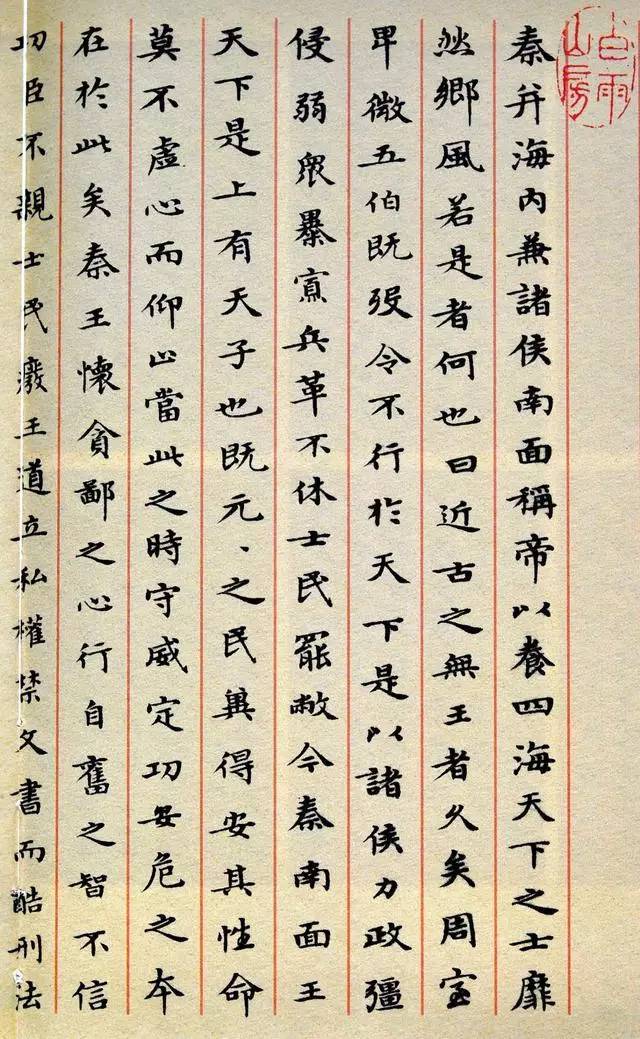 白雨山房
秦并海内兼諸侯南面稱帝以養四海天下之士靡
然鄉風若是者何也曰近古之無王者久矣周室
卑微五伯既歿令不行於天下是以諸侯力政彊
侵弱眾暴寡兵革不休士民罷敝今秦南面王
天下是上有天子也既元、之民冀得安其性命
莫不虛心而仰上當此之時守威定功安危之本
在於此矣秦王懷貪鄙之心行自奮之智不信
功臣不親士民廢王道立私權禁文書而酷刑法